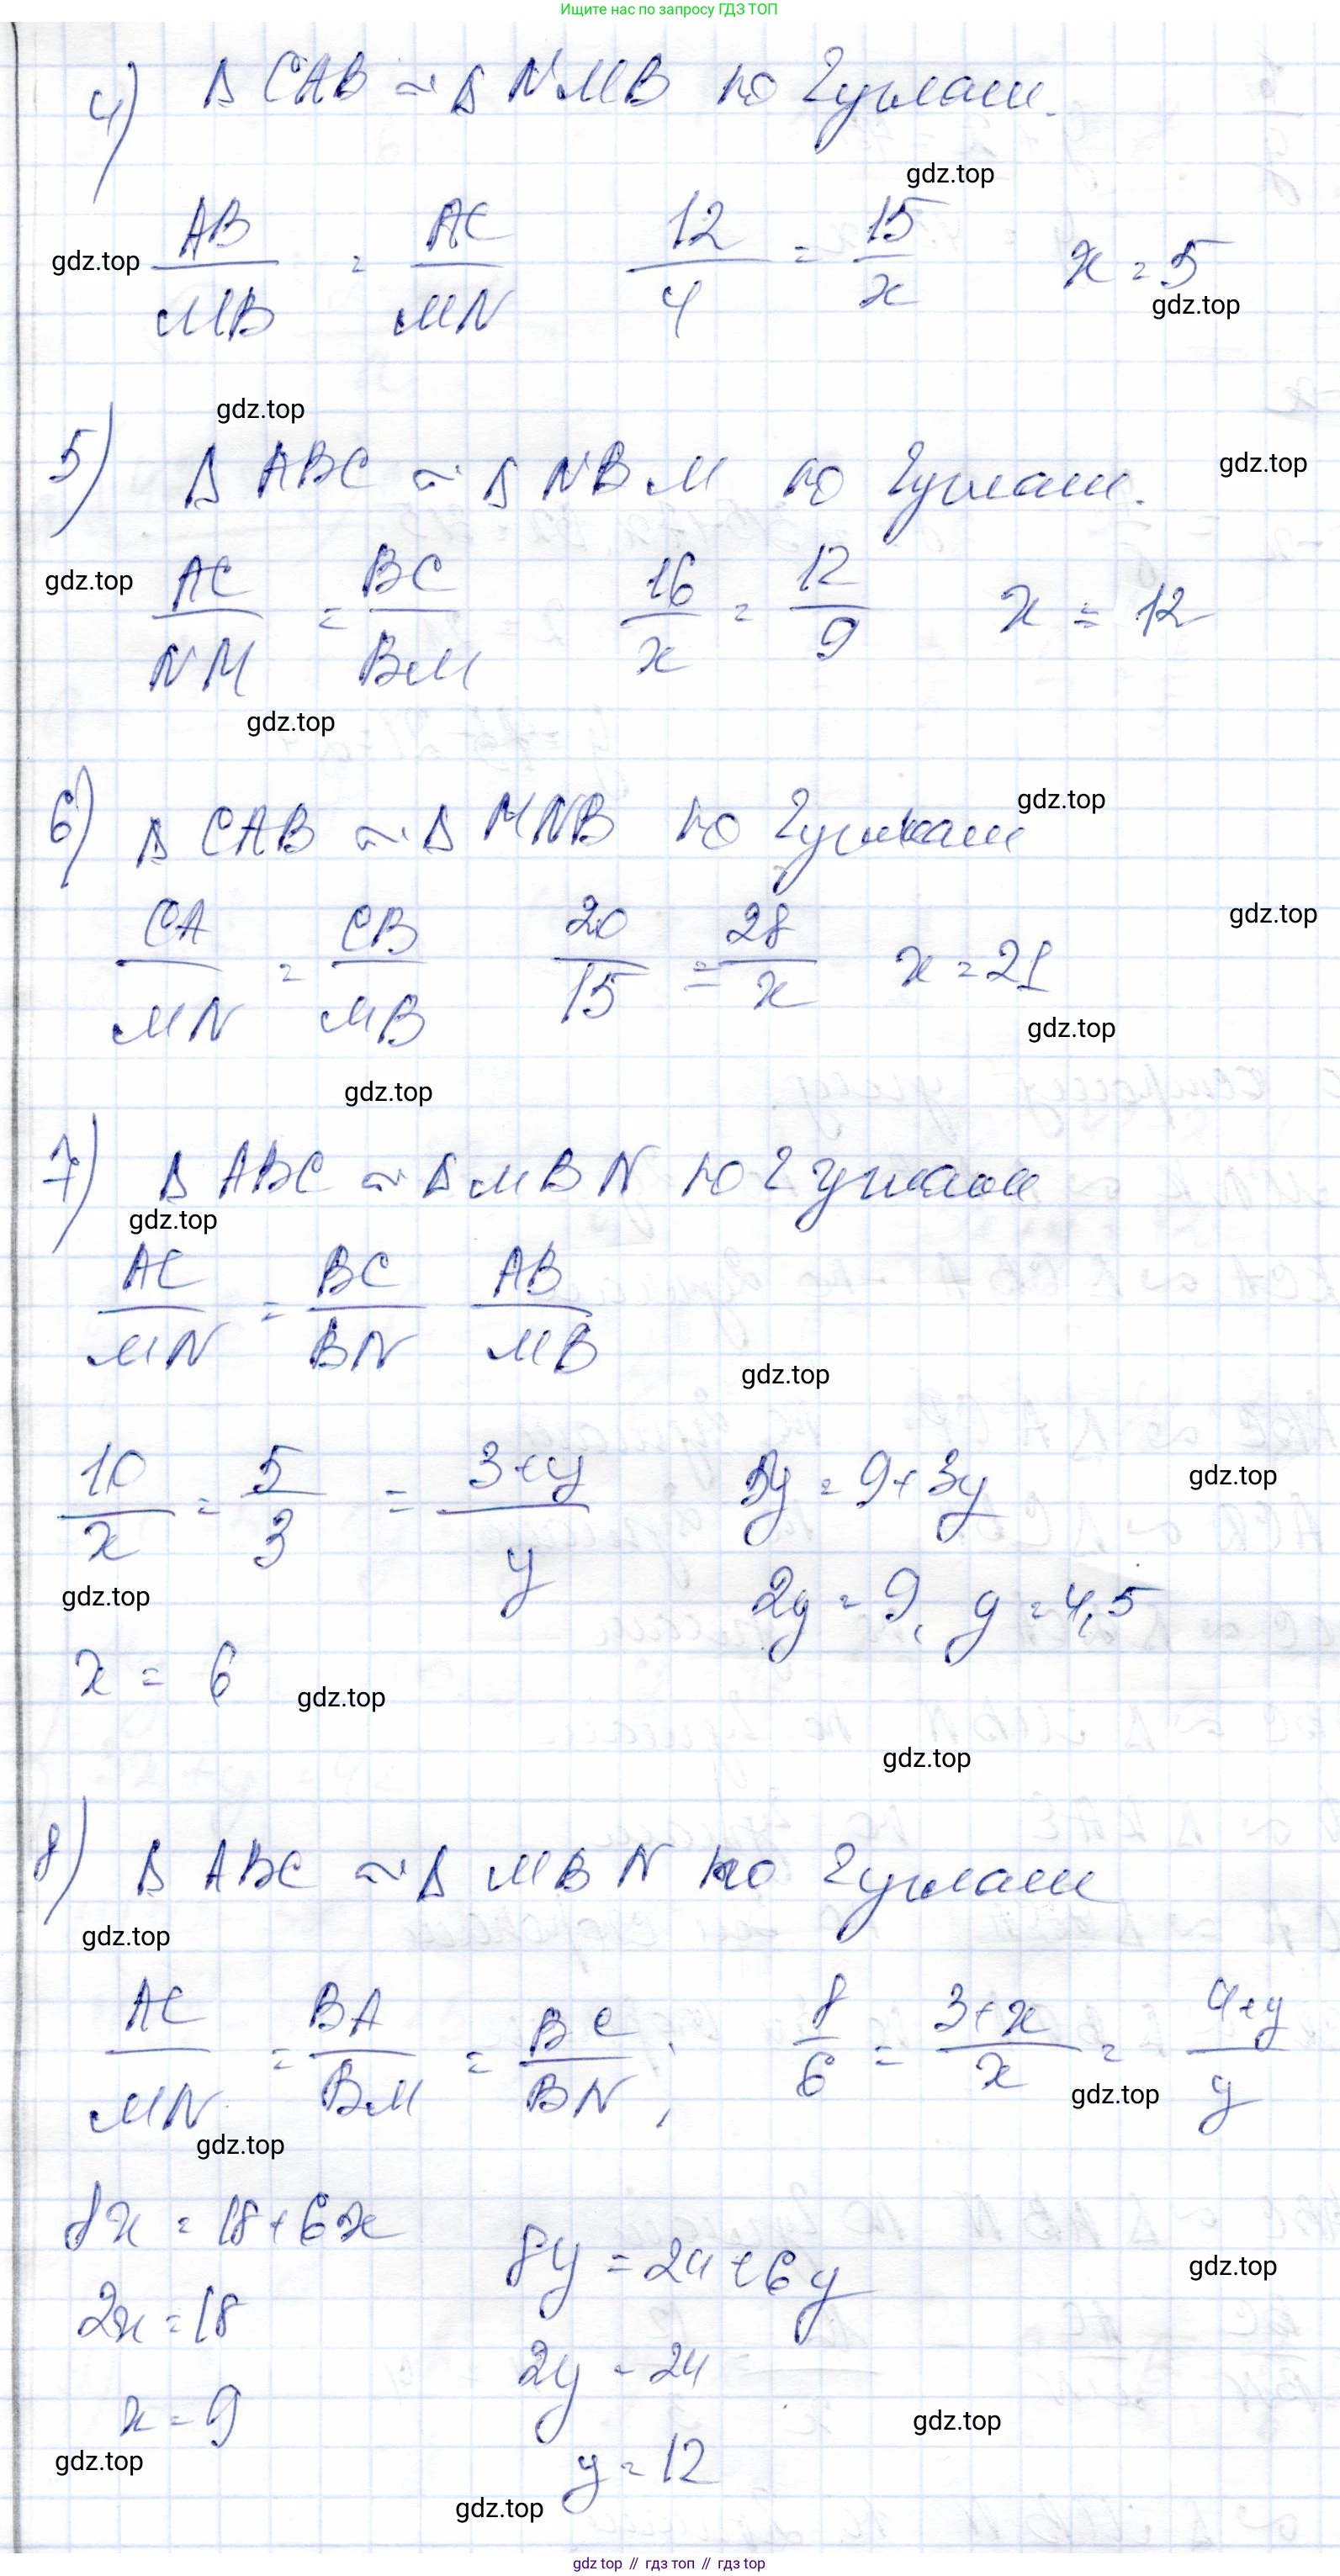 Ищите нас по запросу ГДЗ ТОП
4) Δ CAB ~ Δ NMB по 2 углам.
gdz.top
AB/MB = AC/MN 12/4 = 15/x x = 5
gdz.top
gdz.top
gdz.top
5) Δ ABC ~ Δ NBM по 2 углам.
gdz.top
gdz.top
AC/NM = BC/BM 16/x = 12/9 x = 12
gdz.top
6) Δ CAB ~ Δ MNB по 2 углам
gdz.top
CA/MN = CB/MB 20/15 = 28/x x = 21
gdz.top
gdz.top
gdz.top
7) Δ ABC ~ Δ MBN по 2 углам
gdz.top
AC/MN = BC/BN AB/MB
gdz.top
10/x = 5/3 = 3+y/y 5y = 9+3y
gdz.top
gdz.top
2y = 9, y = 4,5
x = 6
gdz.top
gdz.top
8) Δ ABC ~ Δ MBN по 2 углам
gdz.top
AC/MN = BA/BM = BC/BN ; 8/6 = 3+x/x = 4+y/y
gdz.top
gdz.top
8x = 18+6x
8y = 24+6y
gdz.top
2x = 18
2y = 24
x = 9
gdz.top
gdz.top
y = 12
gdz.top
gdz top // гдз топ // gdz top